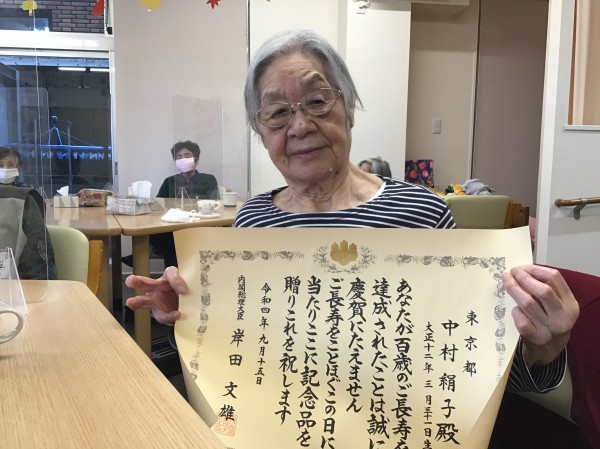 東京都
中村絹子殿
大正十二年三月三十一日生
あなたが百歳のご長寿を
達成されたことは誠に
慶賀にたえません
ご長寿をことほぐこの日に
当たりここに記念品を
贈りこれを祝します
令和四年九月十五日
内閣総理大臣 岸田文雄